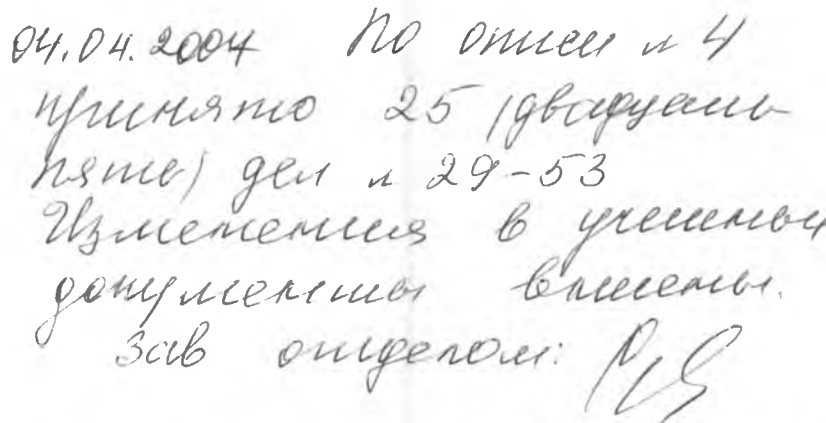 04.04.2004 По описи № 4
принято 25 (двадцать
пять) дел № 29-53
Изменения в учетные
документы внесены.
Зав отделом: